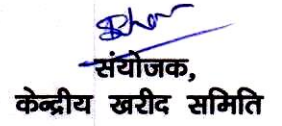 संयोजक,
केन्द्रीय खरीद समिति